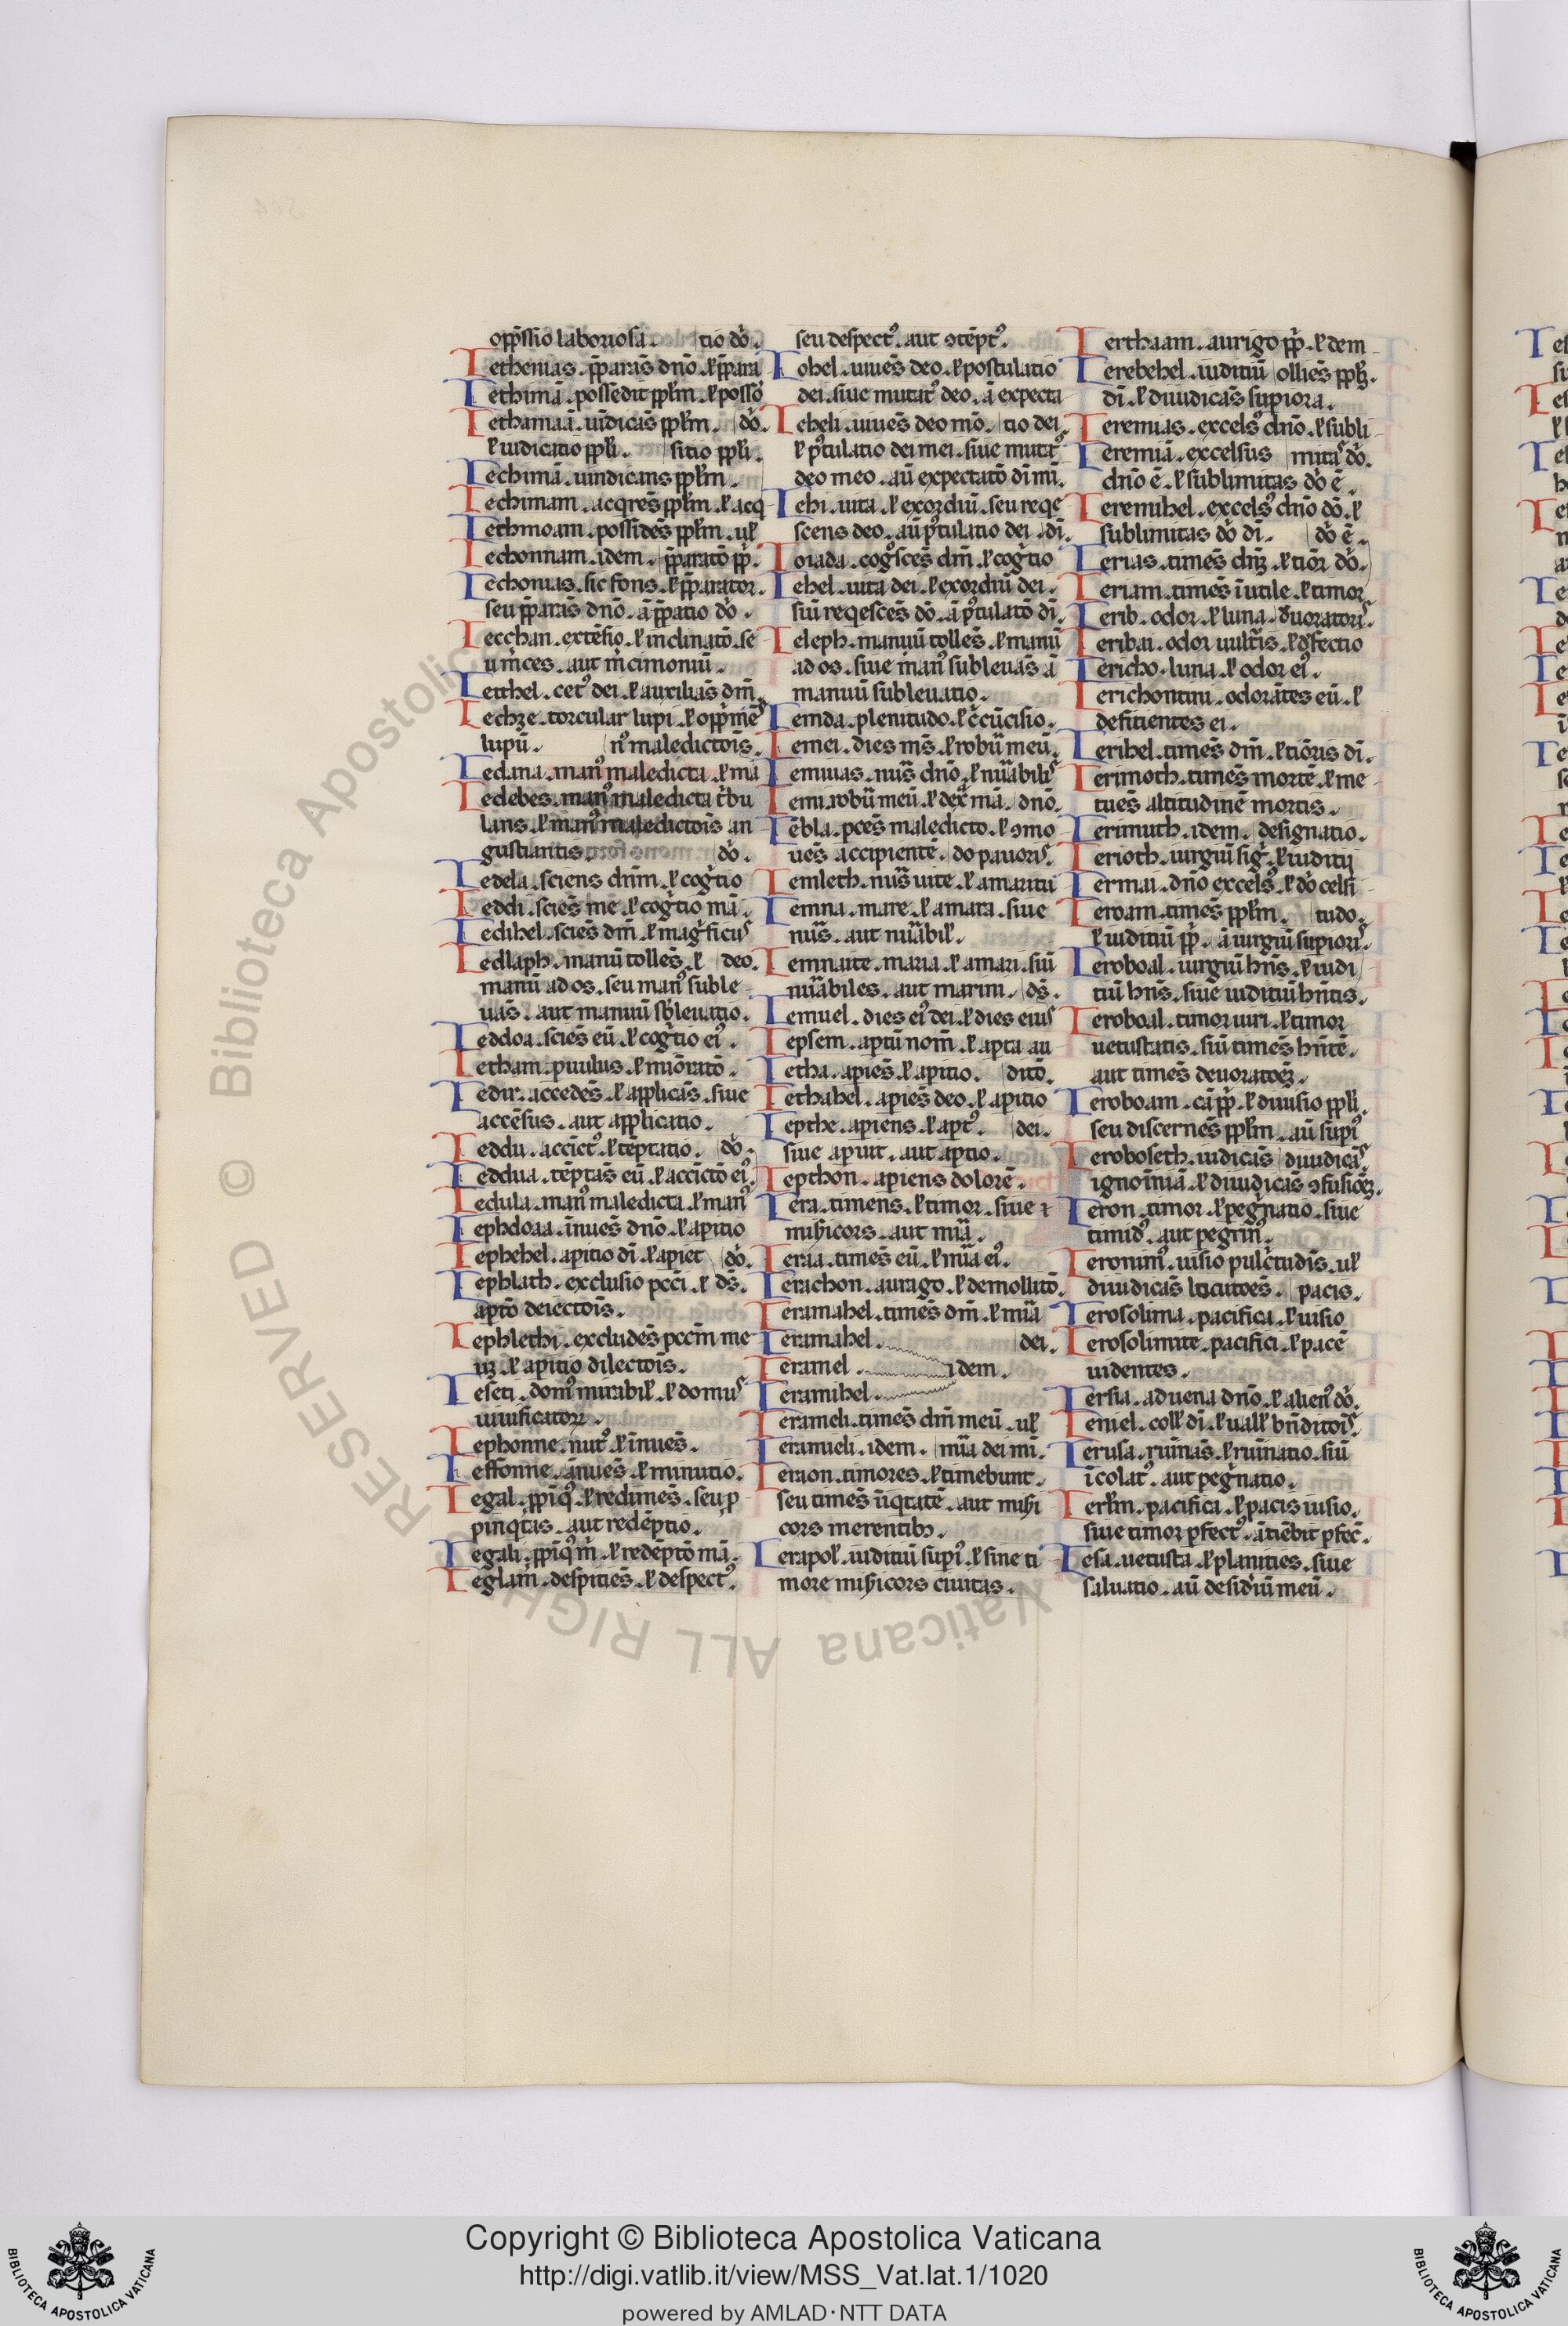 opp̄ssio laboriosa. tio dō.
Iethenias. p̄parās dn̄o. ł p̄para
Iethimā. possedit pp̄lm. ł posso
Iethamaā. uīdicās pp̄lm. dō.
ł iudicatio pp̄li. sitio pp̄li.
Iechimā. uindicans pp̄lm.
Iechinam. acq̄res pp̄lm. ł acq
Iethnoam. possidēs pp̄lm. ul̄
Iechonnam. idem. p̄paratō pp̄.
Iechonias. sic fons. ł p̄parator.
seu p̄parās dn̄o. ā p̄patio dō.
Iecchan. extēsio. ł inclinatō. se
aut
Ietthel. cet᷒ dei. ł auxiliās dm̄.
Iechze. torcular lupi. ł opp̄mēs
lupū. n᷒ maledictōis.
Iedana. man᷒ maledicta. ł ma
Iedebes. man᷒ maledicta t̄bu
lans. ł man᷒ maledictōis an
gustiantis. dō.
Iedela. sciens dn̄m. ł coḡtio
Ieddi. sciēs me. ł coḡtio mā.
Iedihel. sciēs dm̄. ł maḡficus
Iedlaph. manū tollēs. ł deo.
manū ad os. seu man᷒ suble
uās. aut manuū sb̄leuatio.
Ieddoa. sciēs eū. ł coḡtio ei᷒.
Ietham. puulus. ł mīoratō.
Iedir. accedēs. ł applicās. siue
accēsus. aut applicatio.
Ieddu. accīct᷒. ł tēptatio. dō.
Ieddua. tēptās eū. ł accīctō ei᷒.
Iedula. man᷒ maledicta. ł man᷒
Iephdoaa. īnuēs dn̄o. ł apitio
Iephehel. apitio dī. ł apiet dō.
Iephlath. exclusio pcc̄i. ł dēs.
aptō deiectōis.
Iephlethi. excludēs pccm̄ me
uz. ł apitio dilectōis.
Ieseti. dom᷒ mirabil̄. ł domus
uiuificatori.
Iephonne. nut᷒. ł īnuēs.
Ieffonne. ānuēs. ł minutio.
Iegal. p̄pīq᷒. ł redimēs. seu p
pinq̄tas. aut redēptio.
Iegali. p̄pīq᷒ m̄. ł redēptō mā.
Ieglam. despitiēs. ł despect᷒.
seu despect᷒. aut ɔtēpt᷒.
Iohel. uiuēs deo. ł postulatio
dei. siue mutat᷒ deo. ā expecta
Ieheli. uiuēs deo mō. tio dei.
ł p᷒tulatio dei mei. siue mutat᷒
deo meo. aū expectatō dī mī.
Iehi. uita. ł exordiū. seu reqe
scens deo. aū p᷒tulatio dei. dī.
Ioiada. cog̊scēs dm̄. ł coḡtio
Iehel. uita dei. ł exordiū dei.
siū reqescēs dō. ā p᷒tulatō dī.
Ieleph. manuū tollēs. ł manū
ad os. siue man᷒ subleuās ā
manuū subleuatio.
Iemda. plenitudo. ł c̄cūcisio.
Iemei. dies mēs. ł robū meū.
Iemuias. nūs dn̄o. ł nūabilis
Iemi. robū meū. ł dext̄ mā. dn̄o.
Iēbla. pcēs maledicto. ł ɔmo
uēs accipientē. do pauoris.
Iemleth. nūs uite. ł amaritu
Iemna. mare. ł amara. siue
nūs. aut nūabil̄.
Iemnaite. maria. ł amari. siū
nūabiles. aut marini. dēs.
Iemuel. dies ei᷒ dei. ł dies eius
Iepsem. aptū nom̄. ł apta au
Ietha. apiēs. ł apitio. ditō.
Iethahel. apiēs deo. ł apitio
Iepthe. apiens. ł apt᷒. dei.
siue apiuit. aut aptio.
Iepthon. apiens dolorē.
Iera. timens. ł timor. siue ɩ
mis̄icors. aut mīa.
Ieraa. timēs eū. ł mīa ei᷒.
Ierachon. aurago. ł demollitō.
Ieramahel. timēs dm̄. ł mīa
Ieramahel. dei.
Ieramel. idem.
Ieramihel.
Ierameli. timēs dm̄ meū. ul̄
Ieramieli. idem. mīa dei mī.
Ieraon. timores. ł timebunt.
seu timēs īiq̄tatē. aut mis̄i
cors merentibꝫ.
Ierapol̄. iuditiū supi᷒. ł sine ti
more mis̄icors ciuitas.
Ierthaam. aurigo pp̄. ł dem
Ierebehel. iuditiū olliēs pp̄lꝫ.
dī. ł diiudicās supiora.
Ieremias. excels᷒ dn̄o. ł subli
Ieremiā. excelsus mita᷒ dō.
dn̄o ē. ł sublimitas dō ē.
Ieremihel. excels᷒ dn̄o dō. ł
sublimitas dō dī. dō ē.
Ierias. timēs dm̄ꝫ. ł tīor dō.
Ieriam. timēs īutile. ł timor
Ierib. odor. ł luna. deuoratoris.
Ieribai. odor uult᷒is. ł defectio
Iericho. luna. ł odor ei᷒.
Ierichontini. odorātes eū. ł
defitientes ei.
Ieribel. timēs dm̄. ł tīoris dī.
Ierimoth. timēs mortē. ł me
tuēs altitudinē mortis.
Ierimuth. idem. designatio.
Ierioth. iurgiū sig̊. ł iuditij
Iermai. dn̄o excels᷒. ł dō celsi
Ieroam. timēs pp̄lm. tudo.
ł iuditiū pp̄. ā iurgiū supioris.
Ieroboal. iurgiū hn̄s. ł iudi
tiū hn̄s. siue iuditiū hn̄tis.
Ieroboal. timor uiri. ł timor
uetustatis. siū timēs hn̄tē.
aut timēs deuoratorꝫ.
Ieroboam. cā pp̄. ł diuisio pp̄li.
seu discernēs pp̄lm. aū supi᷒
Ieroboseth. iudicās diiudicās
ignomīniā. ł diiudicās ɔfusionꝫ.
Ieron. timor. ł peg̊natio. siue
timid᷒. aut pegrin᷒.
Ieronim᷒. uisio pulc̄tudīs. ul̄
diiudicās locutōes. pacis.
Ierosolima. pacifica. ł uisio
Ierosolimite. pacifici. ł pacē
uidentes.
Iersia. aduena dn̄o. ł alien᷒ dō.
Ieniel. coll᷒ dī. ł uall᷒ bn̄ditōis.
Ierusa. ruīnas. ł ruīnatio. siū
īcolat᷒. aut peg̊natio.
Ierl̄m. pacifica. ł pacis iusio.
siue timor pfect᷒. ā tiēbit pfec̄.
Iesa. uetusta. ł planities. siue
saluatio. aū desid̄iū meū.
Copyright © Biblioteca Apostolica Vaticana
http://digi.vatlib.it/view/MSS_Vat.lat.1/1020
powered by AMLAD·NTT DATA
BIBLIOTECA APOSTOLICA VATICANA
BIBLIOTECA APOSTOLICA VATICANA